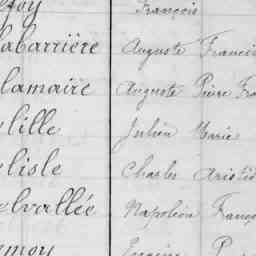 François
abarrière Auguste Franci
lamaire Auguste Pierre Fra
lille Julien Marie
lisle Charles Aristid
elvallée Napoléon Franç